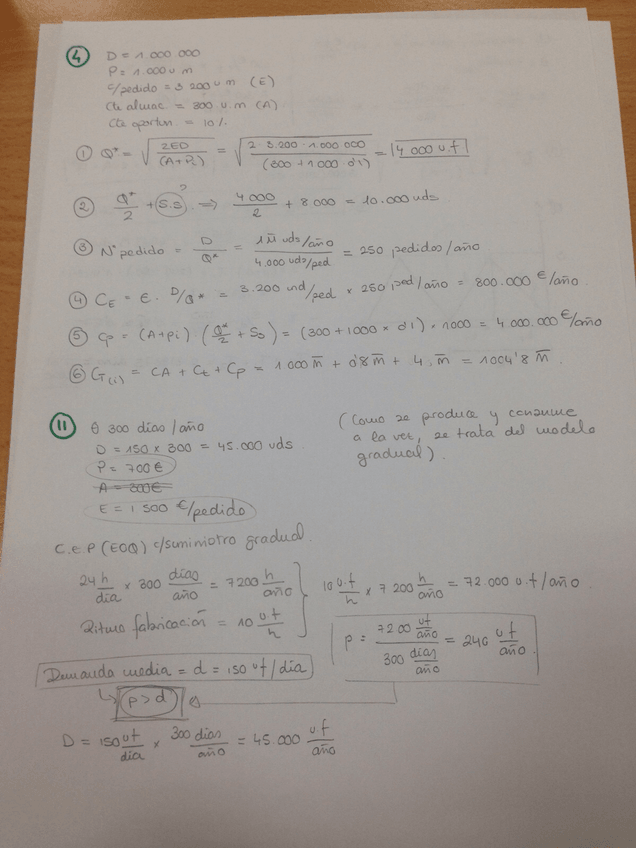 4
D = 1 000 000
P = 1.000 u m
c/pedido = 3 200 u m (E)
Cte almac = 300 u.m (A)
Cte oportun. = 10%
① Q* = √(2ED / (A+Pi)) = √(2 · 3.200 · 1 000 000 / (300 + 1000 · 0'1)) = 4 000 u.f
② Q*/2 + S.S ? ⇒ 4 000/2 + 8 000 = 10.000 uds
③ Nº pedido = D/Q* = 1m̅ uds/año / 4.000 uds/ped = 250 pedidos/año
④ CE = E · D/Q* = 3.200 und/ped × 250 ped/año = 800.000 €/año.
⑤ Cp = (A+pi) (Q*/2 + Ss) = (300 + 1000 × 0'1) · 1000 = 4 000.000 €/año
⑥ CT(i) = CA + Ct + Cp = 1 000 m̅ + 0'8 m̅ + 4. m̅ = 1004'8 m̅.
11
θ 300 días/año
D = 150 × 300 = 45.000 uds
P = 700 €
A = 300€
E = 1 500 €/pedido
(Como se produce y consume
a la vez, se trata del modelo
gradual).
C.E.P (EOQ) c/suministro gradual.
24 h/dia × 300 días/año = 7200 h/año
Ritmo fabricación = 10 u f/h
10 u.f/h × 7 200 h/año = 72.000 u.f/año
P = 7200 uf/año / 300 días/año = 240 u f/año.
Demanda media = d = 150 uf/día
p > d
D = 150 uf/dia × 300 dias/año = 45.000 u f/año